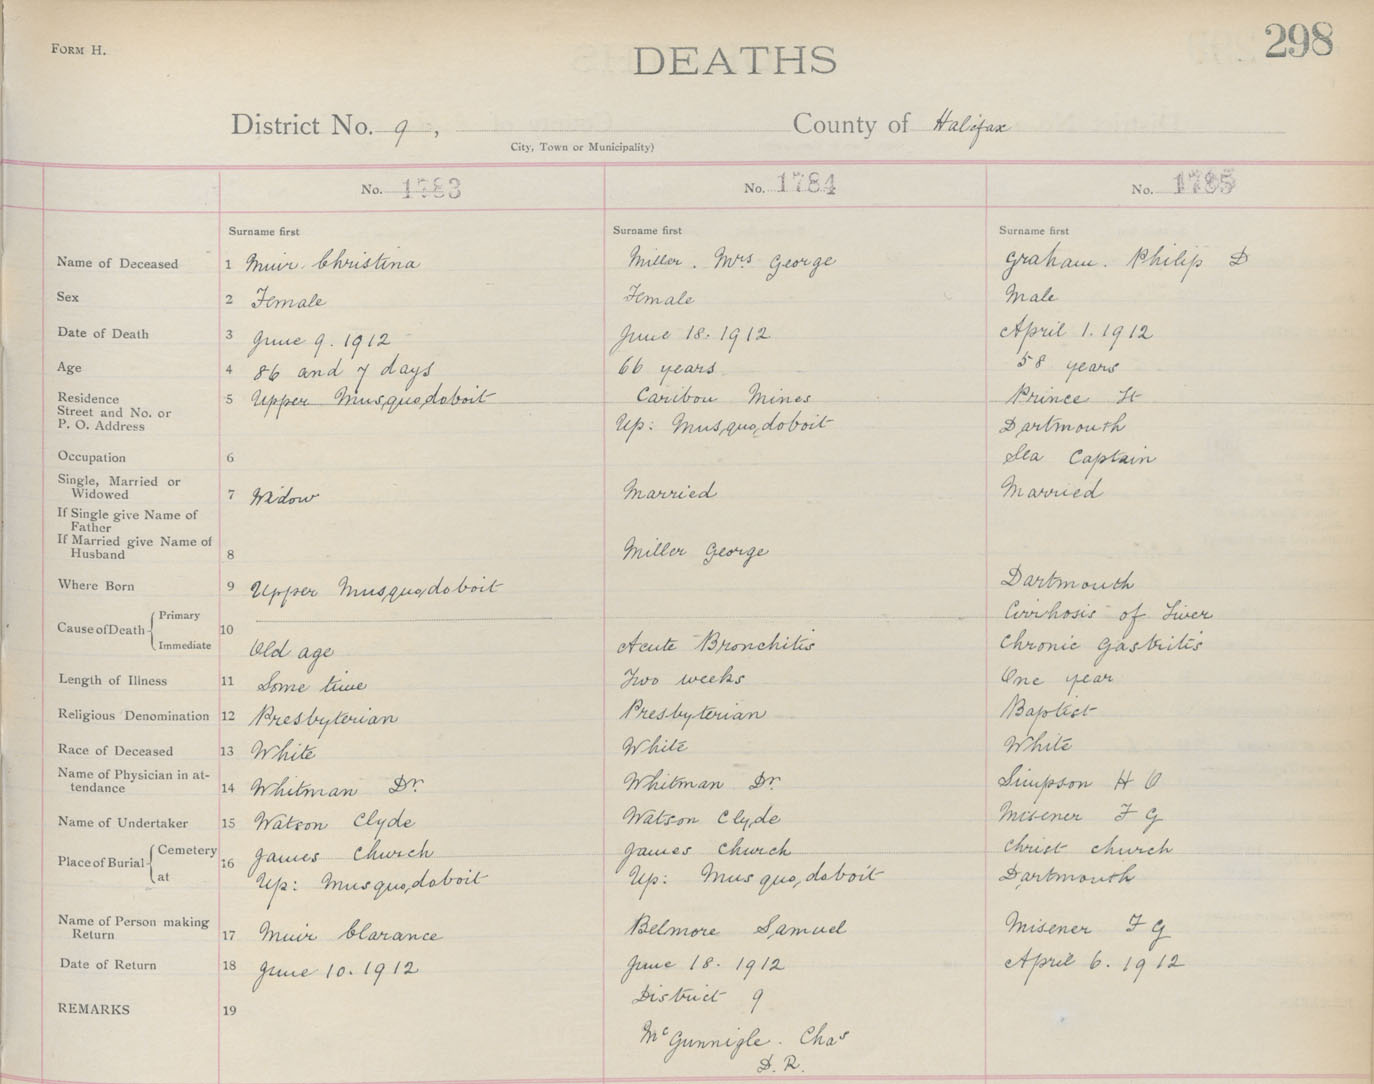 FORM H.
DEATHS
298
District No. 9, County of Halifax
City, Town or Municipality)
No. 1783 No. 1784 No. 1785
Surname first Surname first Surname first
Name of Deceased 1 Muir. Christina Miller. Mrs George Graham. Philip D
Sex 2 Female Female Male
Date of Death 3 June 9. 1912 June 18. 1912 April 1. 1912
Age 4 86 and 7 days 66 years 58 years
Residence 5 Upper Musquodoboit Caribou Mines Prince St
Street and No. or
P. O. Address Up: Musquodoboit Dartmouth
Occupation 6 Sea Captain
Single, Married or
Widowed 7 Widow Married Married
If Single give Name of
Father
If Married give Name of
Husband 8 Miller George
Where Born 9 Upper Musquodoboit Dartmouth
Cause of Death 10 Primary Cirrhosis of Liver
Immediate Old age Acute Bronchitis Chronic Gastritis
Length of Illness 11 Some time Two weeks One year
Religious Denomination 12 Presbyterian Presbyterian Baptist
Race of Deceased 13 White White White
Name of Physician in at-
tendance 14 Whitman Dr. Whitman Dr. Simpson H O
Name of Undertaker 15 Watson Clyde Watson Clyde Misener F G
Place of Burial 16 Cemetery James Church James Church Christ Church
at Up: Musquodoboit Up: Musquodoboit Dartmouth
Name of Person making
Return 17 Muir Clarance Belmore Samuel Misener F G
Date of Return 18 June 10. 1912 June 18. 1912 April 6. 1912
REMARKS 19 District 9
McGunnigle. Chas
D. R.